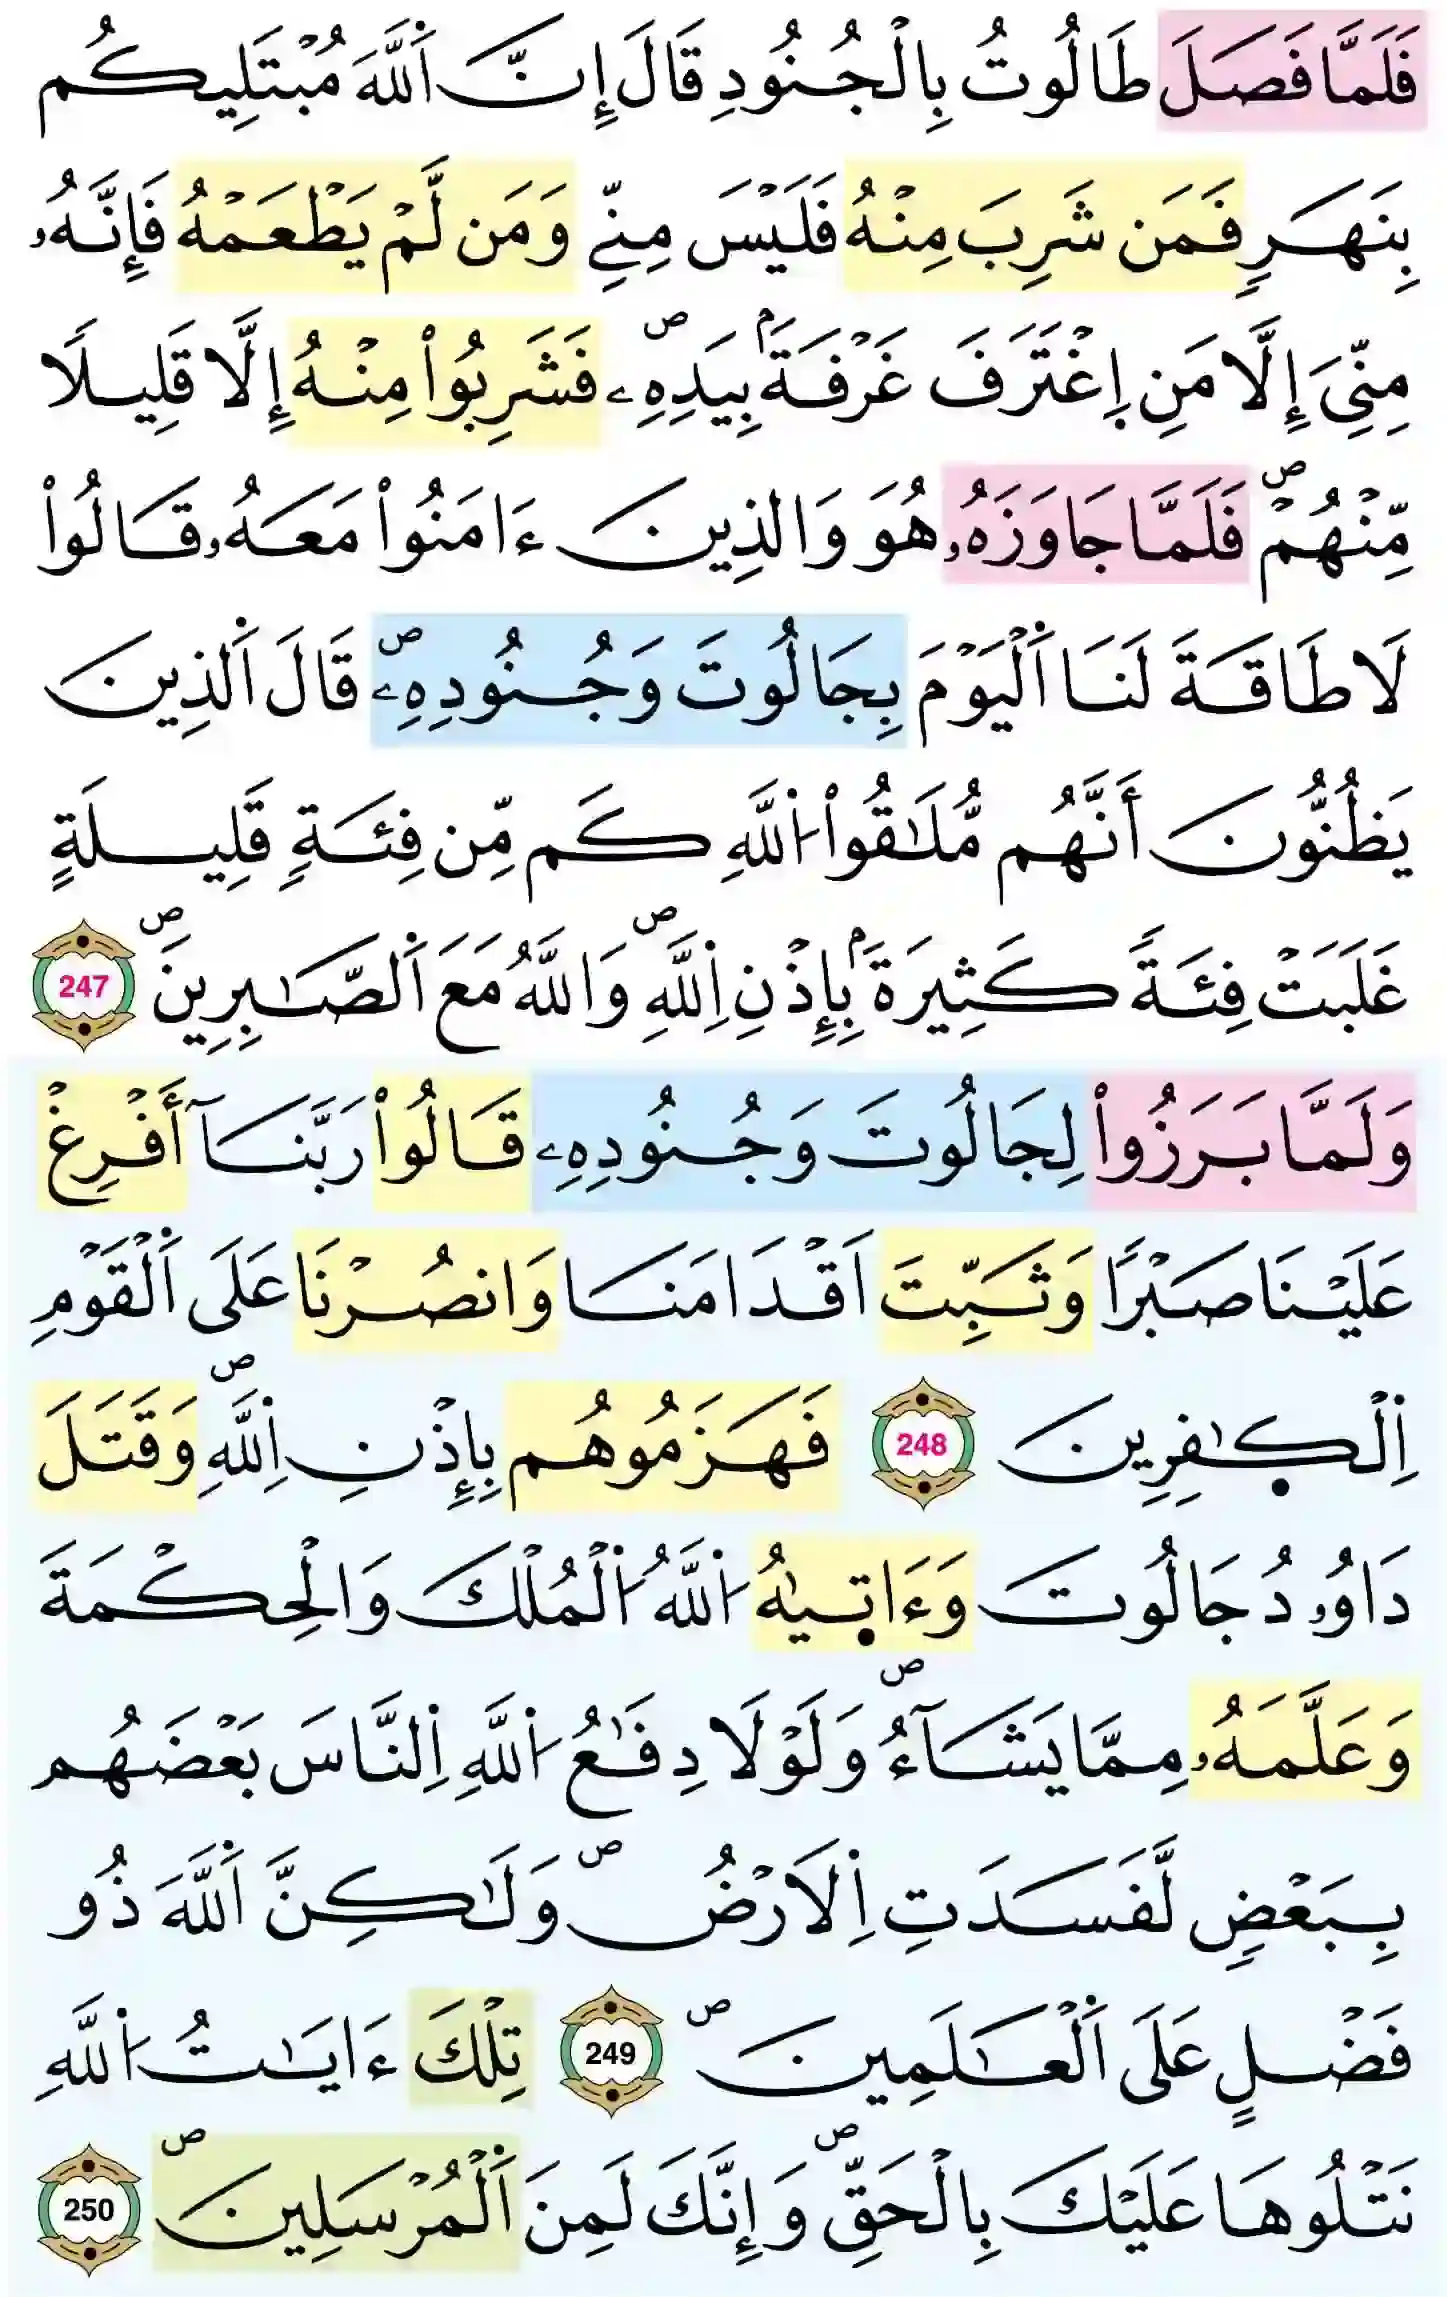 فَلَمَّا فَصَلَ طَالُوتُ بِالْجُنُودِ قَالَ إِنَّ اَ۬للَّهَ مُبْتَلِيكُم
بِنَهَرٍ فَمَن شَرِبَ مِنْهُ فَلَيْسَ مِنِّے وَمَن لَّمْ يَطْعَمْهُ فَإِنَّهُۥ
مِنِّيَ إِلَّا مَنِ اِ۪غْتَرَفَ غَرْفَةَۢ بِيَدِهِۦۖ فَشَرِبُواْ مِنْهُ إِلَّا قَلِيلًا
مِّنْهُمْۖ فَلَمَّا جَاوَزَهُۥ هُوَ وَالذِينَ ءَامَنُواْ مَعَهُۥ قَالُواْ
لَا طَاقَةَ لَنَا اَ۬لْيَوْمَ بِجَالُوتَ وَجُنُودِهِۦۖ قَالَ اَ۬لذِينَ
يَظُنُّونَ أَنَّهُم مُّلَٰقُواْ اُ۬للَّهِ كَم مِّن فِئَةٍ قَلِيلَةٍ
غَلَبَتْ فِئَةً كَثِيرَةَۢ بِإِذْنِ اِ۬للَّهِۖ وَاللَّهُ مَعَ اَ۬لصَّٰبِرِينَۖ 247
وَلَمَّا بَرَزُواْ لِجَالُوتَ وَجُنُودِهِۦ قَالُواْ رَبَّنَآ أَفْرِغْ
عَلَيْنَا صَبْرًا وَثَبِّتَ اَقْدَامَنَا وَانصُرْنَا عَلَى اَ۬لْقَوْمِ
اِ۬لْكٰٜفِرِينَ 248 فَهَزَمُوهُم بِإِذْنِ اِ۬للَّهِۖ وَقَتَلَ
دَاوُۥدُ جَالُوتَ وَءَاتٜيٰهُ اُ۬للَّهُ اُ۬لْمُلْكَ وَالْحِكْمَةَ
وَعَلَّمَهُۥ مِمَّا يَشَآءُۖ وَلَوْلَا دِفَٰعُ اُ۬للَّهِ اِ۬لنَّاسَ بَعْضَهُم
بِبَعْضٍ لَّفَسَدَتِ اِ۬لَارْضُۖ وَلَٰكِنَّ اَ۬للَّهَ ذُو
فَضْلٍ عَلَى اَ۬لْعَٰلَمِينَۖ 249 تِلْكَ ءَايَٰتُ اُ۬للَّهِ
نَتْلُوهَا عَلَيْكَ بِالْحَقِّۖ وَإِنَّكَ لَمِنَ اَ۬لْمُرْسَلِينَۖ 250